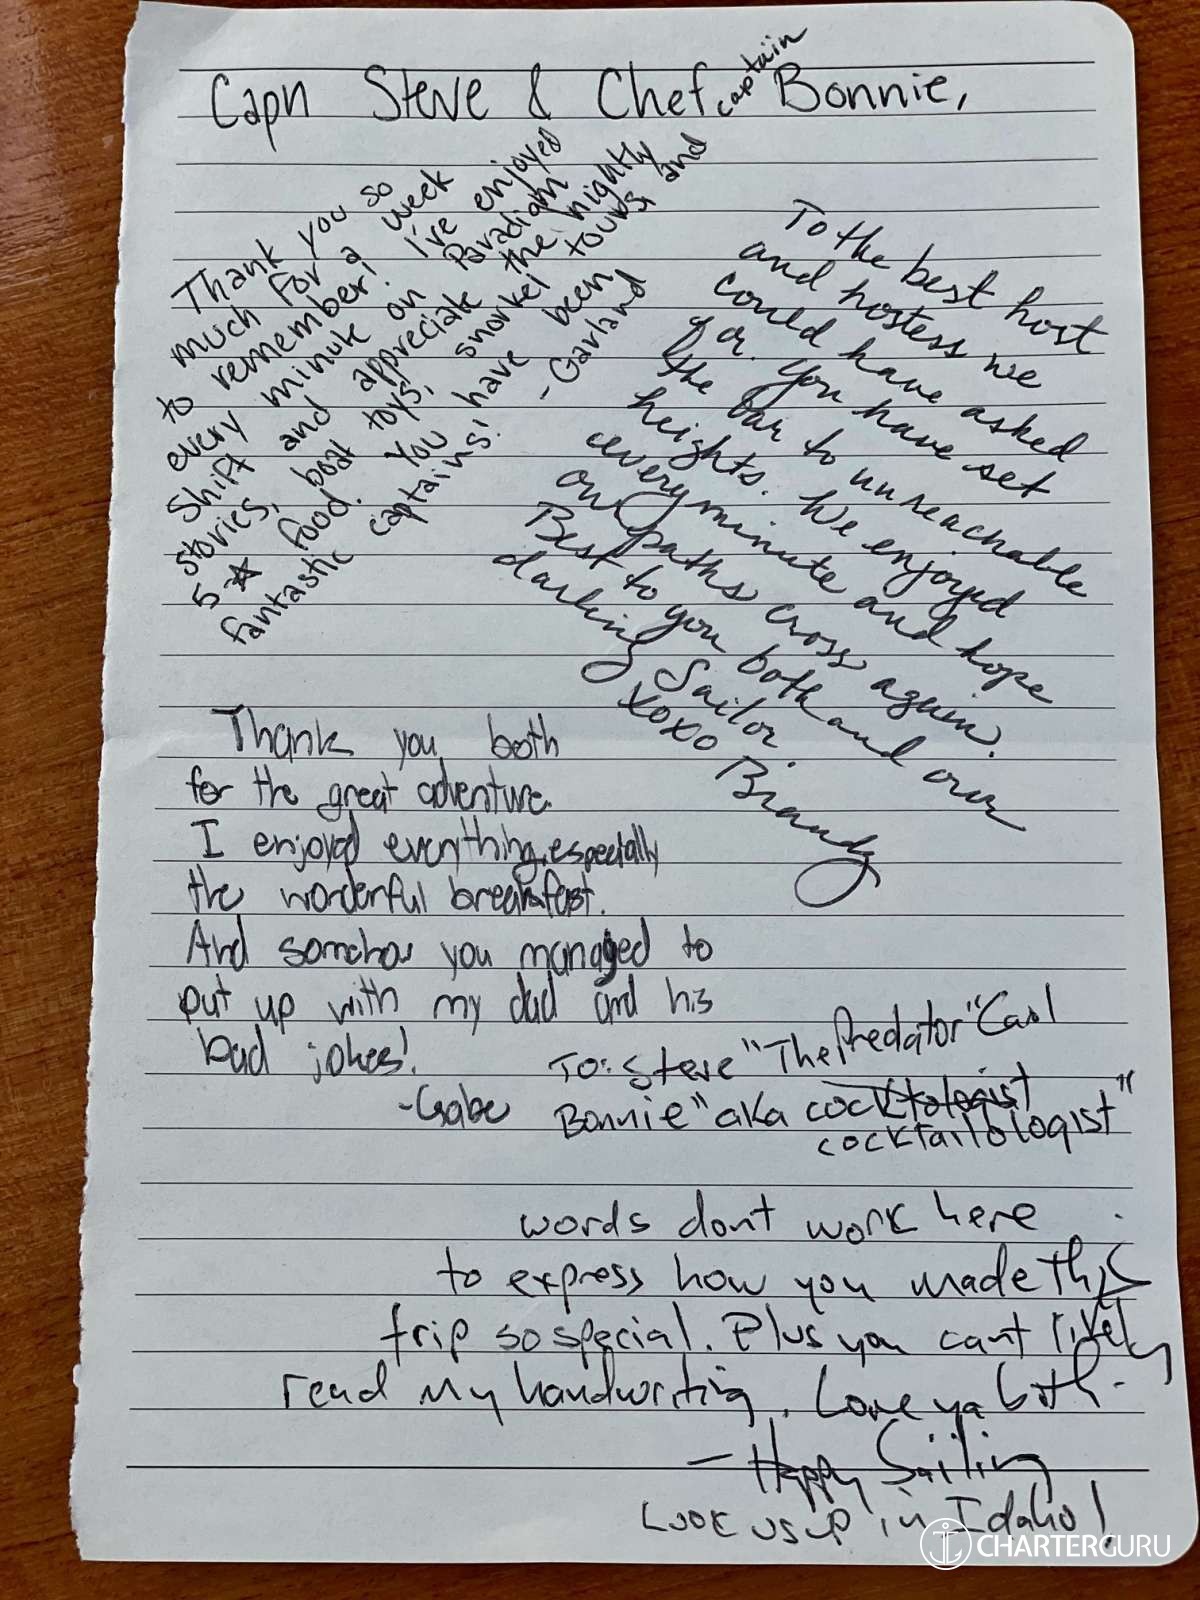 Capn Steve & Chef captain Bonnie,
Thank you so
much for a week
to remember! I've enjoyed
every minute on Paradigm
Shift and appreciate the nightly
stories, boat toys, snorkel tours, and
5 ☆ food. You have been
fantastic captains!
- Garland
To the best host
and hostess we
could have asked
for. You have set
the bar to unreachable
heights. We enjoyed
every minute and hope
our paths cross again.
Best to you both and our
darling Sailor.
xoxo Brandy
Thank you both
for the great adventure.
I enjoyed everything, especially
the wonderful breakfast.
And somehow you managed to
put up with my dad and his
bad jokes!
-Gabe
To: Steve "The Predator" Carl
Bonnie "aka cocktologist
cocktailologist"
words dont work here
to express how you made this
trip so special. Plus you cant
read my handwriting. Love ya both-
- Happy Sailing
Look us up in Idaho!
CHARTERGURU